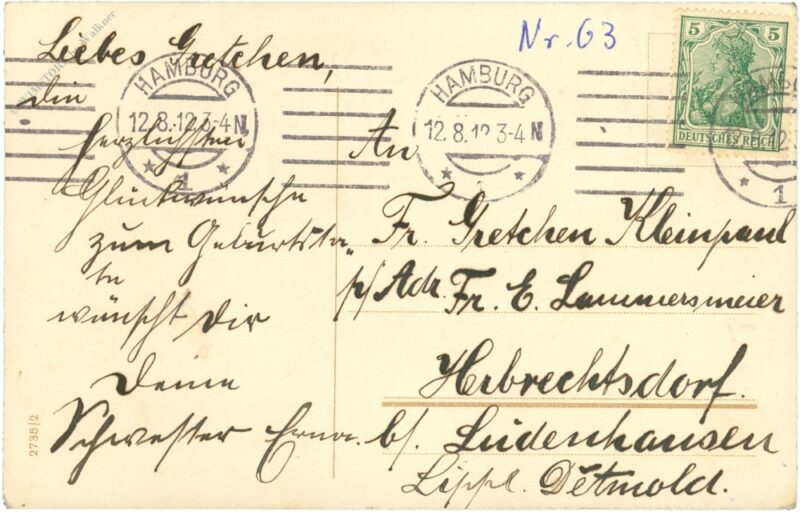 Liebes Gretchen,
die
herzlichsten
Glückwünsche
zum Geburtsta-
ge
wünscht Dir
Deine
Schwester Erna.
Nr. 63
HAMBURG
12.8.12.3-4N
1
HAMBURG
12.8.12.3-4N
1
5 5
DEUTSCHES REICH
1
An
Fr. Gretchen Kleinpaul
p/Adr. Fr. E. Lammersmeier
Herbrechtsdorf.
b/. Lüdenhausen
Lippe. Detmold.
2735/2
Walkner